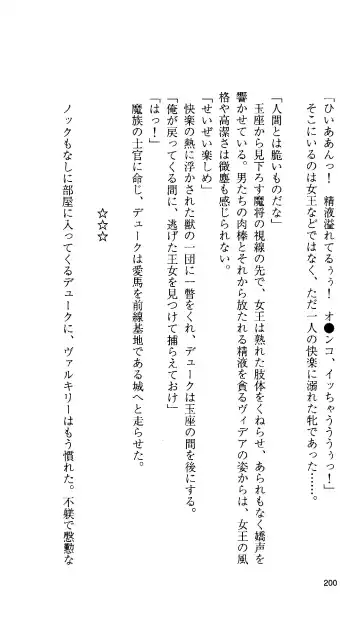 「ひいああんっ！　精液溢れてるぅぅ！　オ●ンコ、イッちゃうううぅっ！」
そこにいるのは女王などではなく、ただ一人の快楽に溺れた牝であった……。
「人間とは脆いものだな」
玉座から見下ろす魔将の視線の先で、女王は熟れた肢体をくねらせ、あられもなく嬌声を
響かせている。男たちの肉棒とそれから放たれる精液を貪るヴィデアの姿からは、女王の風
格や高潔さは微塵も感じられない。
「せいぜい楽しめ」
快楽の熱に浮かされた獣の一団に一瞥をくれ、デュークは玉座の間を後にする。
「俺が戻ってくる間に、逃げた王女を見つけて捕らえておけ」
「はっ！」
魔族の士官に命じ、デュークは愛馬を前線基地である城へと走らせた。
☆☆☆
ノックもなしに部屋に入ってくるデュークに、ヴァルキリーはもう慣れた。不躾で慇懃な
200